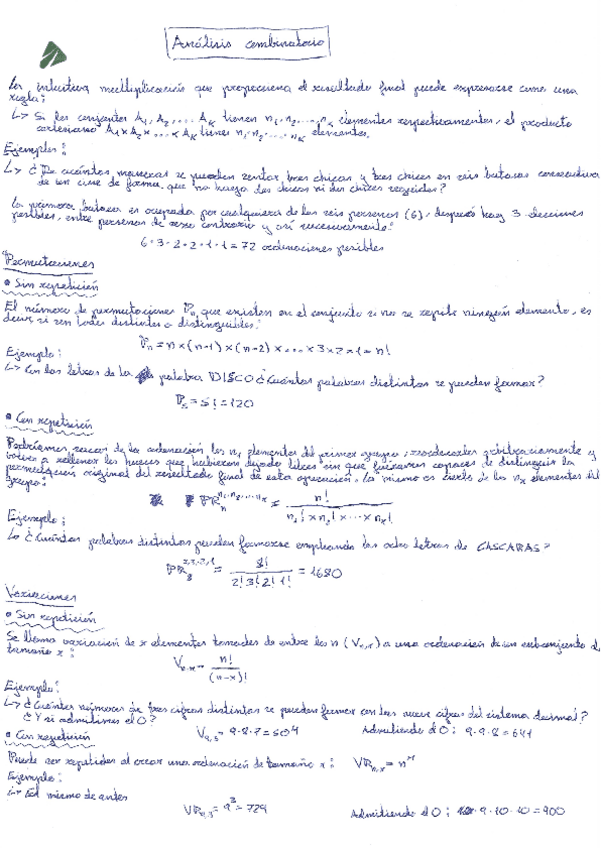 Análisis combinatorio
La intuitiva multiplicación que proporciona el resultado final puede expresarse como una
regla:
↳ Si los conjuntos A₁, A₂, .... Aₖ tienen n₁, n₂, ..., nₖ elementos respectivamente, el producto
cartesiano A₁×A₂×...×Aₖ tiene n₁·n₂·...·nₖ elementos.
Ejemplo:
↳ ¿De cuántas maneras se pueden sentar tres chicas y tres chicos en seis butacas consecutivas
de un cine de forma que no haya dos chicas ni dos chicos seguidos?
La primera butaca es ocupada por cualquiera de las seis personas (6), después hay 3 elecciones
posibles, entre personas de sexo contrario y así sucesivamente:
6·3·2·2·1·1 = 72 ordenaciones posibles
Permutaciones
• Sin repetición
El número de permutaciones Pₙ que existen en el conjunto si no se repite ningún elemento, es
decir, si son todos distintos o distinguibles:
Pₙ = n×(n-1)×(n-2)×...×3×2×1 = n!
Ejemplo:
↳ Con las letras de la palabra DISCO ¿Cuántas palabras distintas se pueden formar?
P₅ = 5! = 120
• Con repetición
Podríamos sacar de la ordenación los n₁ elementos del primer grupo, reordenarlos arbitrariamente y
volver a rellenar los huecos que hubieran dejado libres sin que fuéramos capaces de distinguir la
permutación original del resultado final de esta operación. Lo mismo es cierto de los elementos del
grupo:
PRₙ^(n₁,n₂,...,nₖ) = n! / (n₁!×n₂!×...×nₖ!)
Ejemplo:
↳ ¿Cuántas palabras distintas pueden formarse empleando las ocho letras de CASCARAS?
PR₈ = 8! / (2!3!2!1!) = 1680
Variaciones
• Sin repetición
Se llama variación de x elementos tomados de entre los n (Vₙ,ₓ) a una ordenación de un subconjunto de
tamaño x:
Vₙ,ₓ = n! / (n-x)!
Ejemplo:
↳ ¿Cuántos números de tres cifras distintas se pueden formar con las nueve cifras del sistema decimal?
¿Y si admitimos el 0? V₉,₃ = 9·8·7 = 504 Admitiendo el 0: 9·9·8 = 641
• Con repetición
Puede ser repetidos al crear una ordenación de tamaño x: VRₙ,ₓ = nˣ
Ejemplo:
↳ El mismo de antes
VR₉,₃ = 9³ = 729 Admitiendo el 0: 9·10·10 = 900